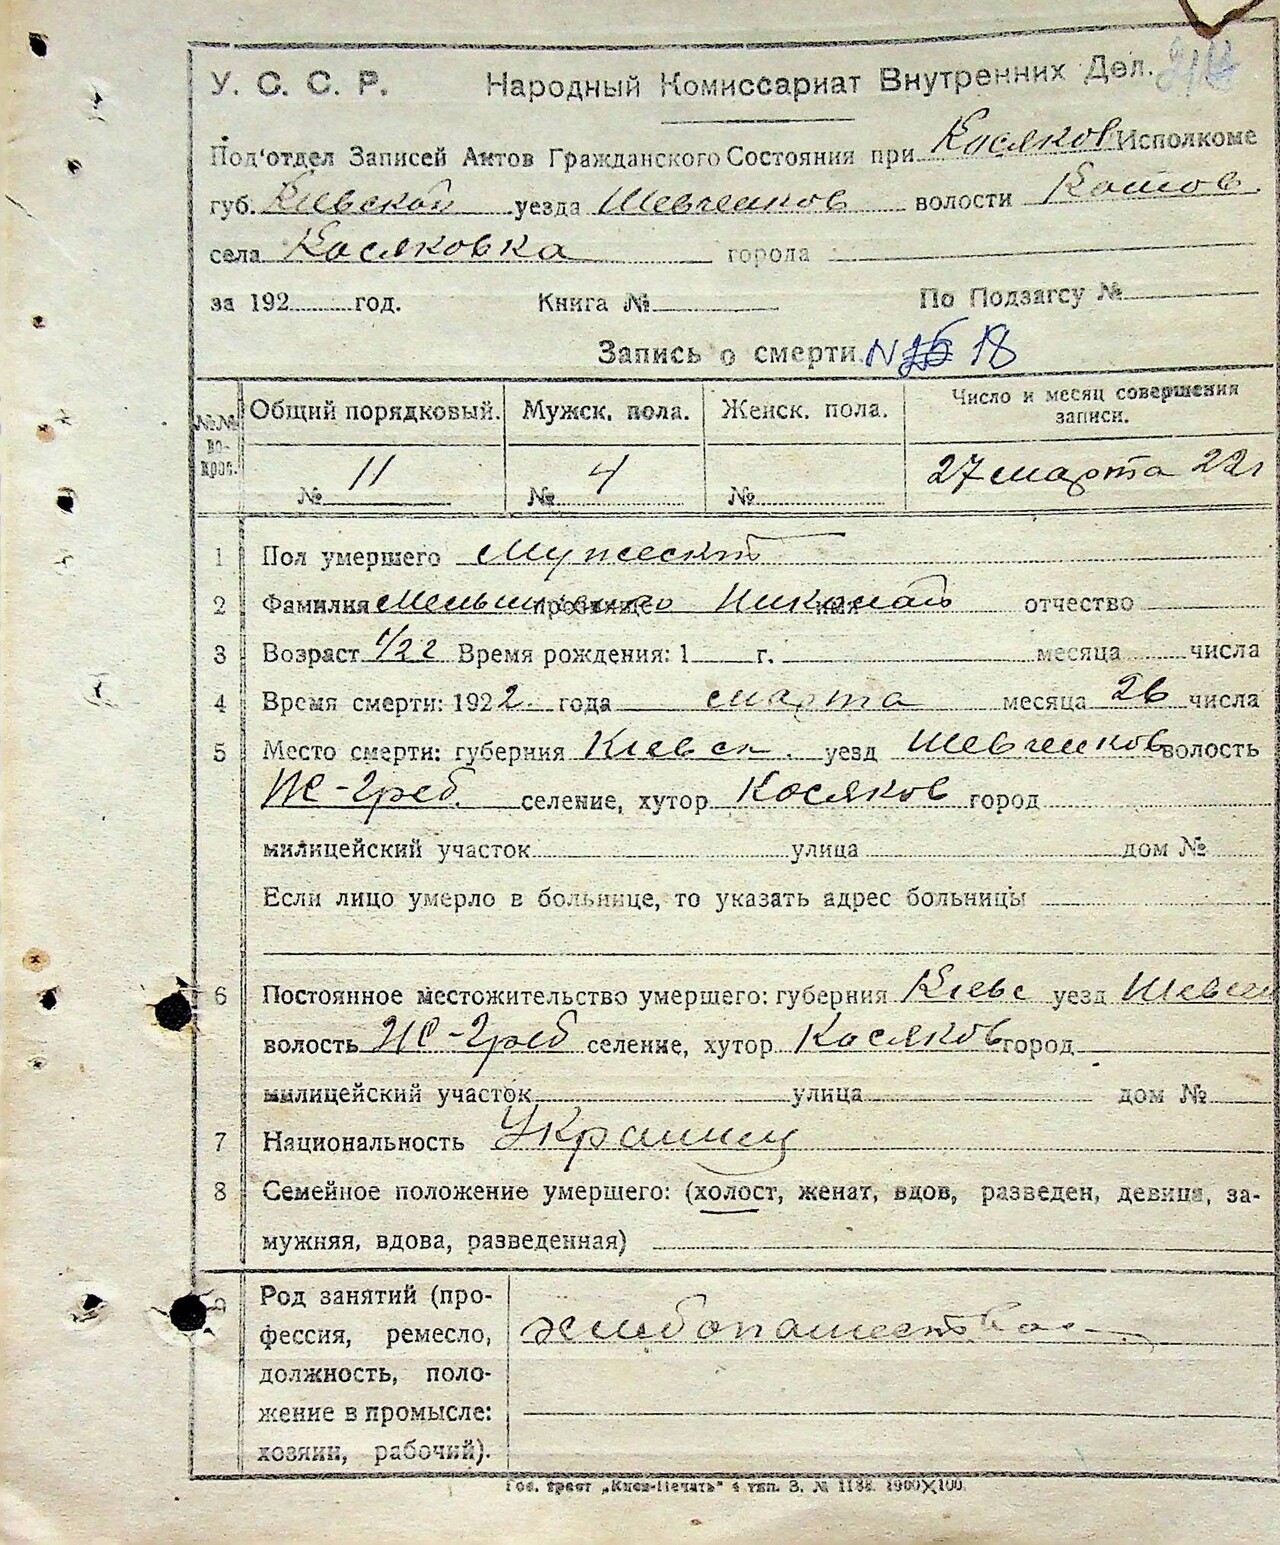 У. С. С. Р. Народный Комиссариат Внутренних Дел.
Под'отдел Записей Актов Гражданского Состояния при Косяков Исполкоме
губ. Киевской уезда Шевченков волости
села Косяковка города
за 192 год. Книга № По Подзагсу №
Запись о смерти N 18
№№ во-прос. Общий порядковый. Мужск. пола. Женск. пола. Число и месяц совершения записи.
№ 11 № 4 № 27 марта 22 г
1 Пол умершего Мужеский
2 Фамилия прозвище Николай имя отчество
3 Возраст 1/2 г Время рождения: 1 г. месяца числа
4 Время смерти: 1922 года марта месяца 26 числа
5 Место смерти: губерния Киевск. уезд Шевченков волость
селение, хутор Косяков город
милицейский участок улица дом №
Если лицо умерло в больнице, то указать адрес больницы
6 Постоянное местожительство умершего: губерния Киевс уезд Шевчен
волость селение, хутор Косяков город
милицейский участок улица дом №
7 Национальность Украинец
8 Семейное положение умершего: (холост, женат, вдов, разведен, девица, за-
мужняя, вдова, разведенная)
9 Род занятий (про-
фессия, ремесло,
должность, поло-
жение в промысле:
хозяин, рабочий).
хлебопашество
Гос. трест „Киев-Печать" 4 тип. З. № 1188. 1900×100.